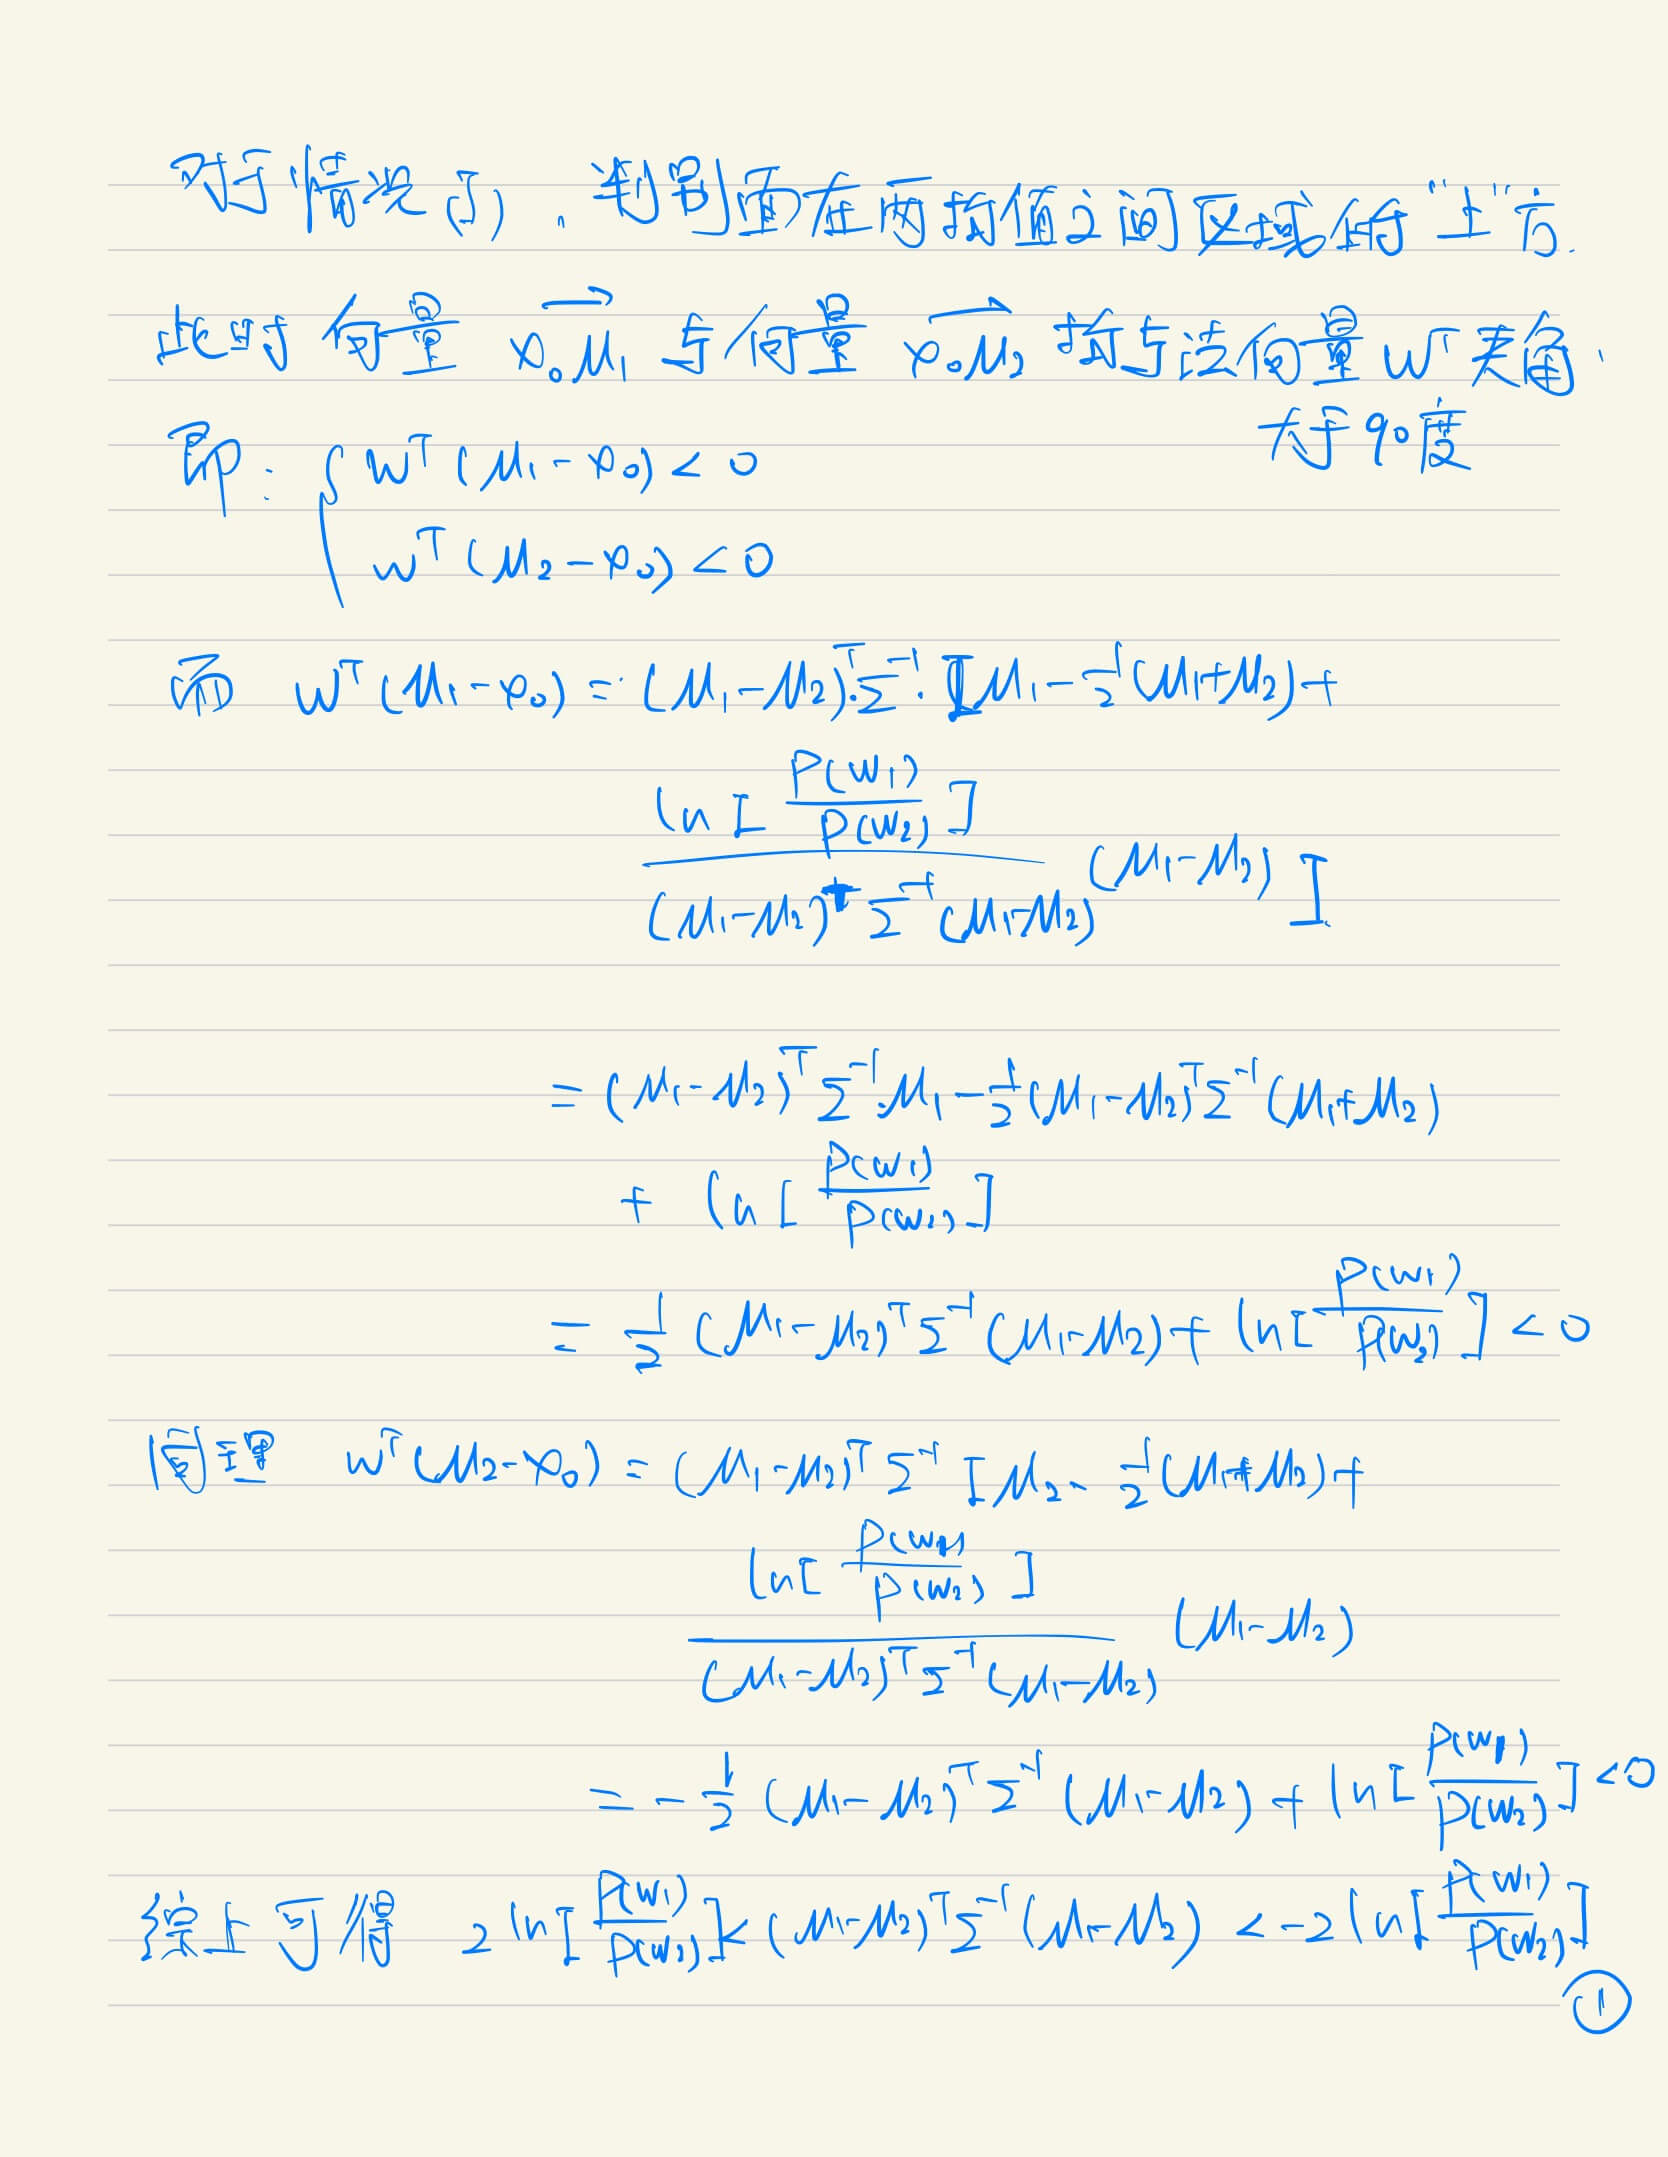 对于情况(1),判别面在两均值之间区域的"上"方.
此时向量 x₀μ₁ 与向量 x₀μ₂ 均与法向量 wᵀ 夹角
大于90度
即: { wᵀ(μ₁-x₀)<0
wᵀ(μ₂-x₀)<0
而 wᵀ(μ₁-x₀)=(μ₁-μ₂)ᵀΣ⁻¹·[μ₁-½(μ₁+μ₂)+
ln[P(w₁)/P(w₂)] / (μ₁-μ₂)ᵀΣ⁻¹(μ₁-μ₂) (μ₁-μ₂)]
=(μ₁-μ₂)ᵀΣ⁻¹·μ₁-½(μ₁-μ₂)ᵀΣ⁻¹(μ₁+μ₂)
+ ln[P(w₁)/P(w₂)]
= ½(μ₁-μ₂)ᵀΣ⁻¹(μ₁-μ₂)+ln[P(w₁)/P(w₂)]<0
同理 wᵀ(μ₂-x₀)=(μ₁-μ₂)ᵀΣ⁻¹[μ₂-½(μ₁+μ₂)+
ln[P(w₁)/P(w₂)] / (μ₁-μ₂)ᵀΣ⁻¹(μ₁-μ₂) (μ₁-μ₂)
=-½(μ₁-μ₂)ᵀΣ⁻¹(μ₁-μ₂)+ln[P(w₁)/P(w₂)]<0
综上可得 2ln[P(w₁)/P(w₂)]<(μ₁-μ₂)ᵀΣ⁻¹(μ₁-μ₂)<-2ln[P(w₁)/P(w₂)]
①